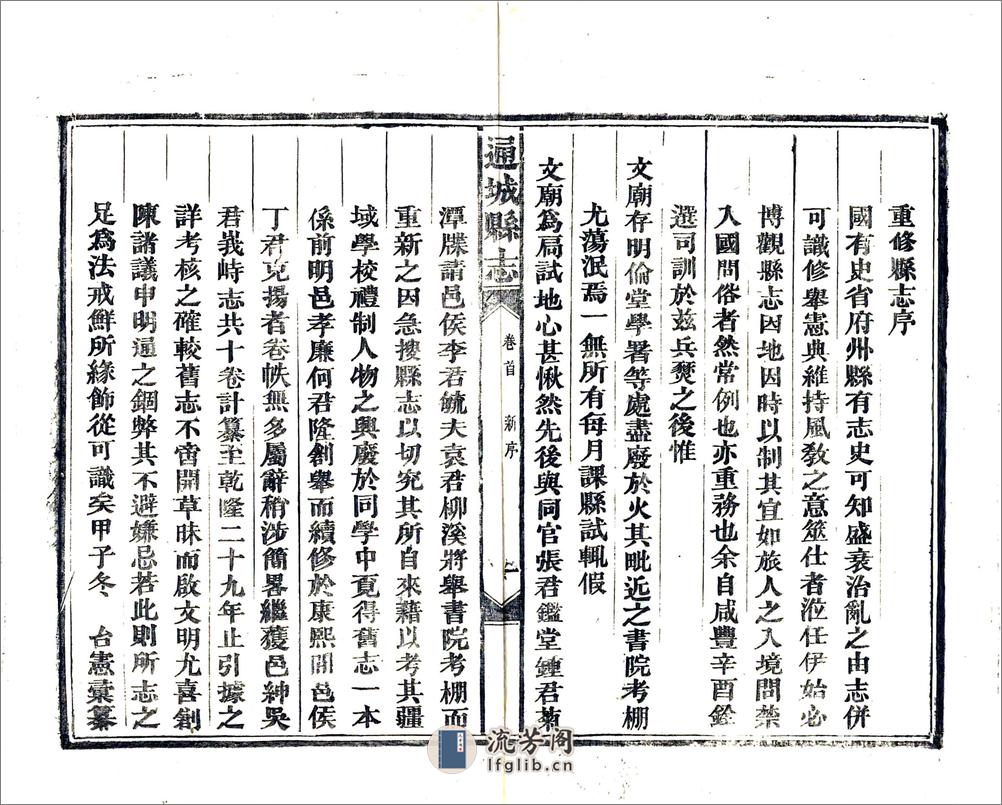 重修縣志序
國有史省府州縣有志史可知盛衰治亂之由志併
可識修舉憲典維持風教之意筮仕者涖任伊始必
博觀縣志因地因時以制其宜如旅人之入境問禁
入國問俗者然常例也亦重務也余自咸豐辛酉銓
選司訓於兹兵燹之後惟
文廟存明倫堂學署等處盡廢於火其毗近之書院考棚
尤蕩泯焉一無所有每月課縣試輒假
文廟爲局試地心甚愀然先後與同官張君鑑堂鍾君菊
通城縣志
卷首
新序
七
潭牒請邑侯李君毓夫袁君柳溪將舉書院考棚而
重新之因急搜縣志以切究其所自來藉以考其疆
域學校禮制人物之興廢於同學中覓得舊志一本
係前明邑孝廉何君隆創舉而續修於康熙間邑侯
丁君克揚者卷帙無多屬辭稍涉簡畧繼獲邑紳吳
君峩峙志共十卷計纂至乾隆二十九年止引據之
詳考核之確較舊志不啻開草昧而啟文明尤喜創
陳諸議申明逋之錮弊其不避嫌忌若此則所志之
足爲法戒鮮所緣飾從可識矣甲子冬 台憲彙纂
流芳閣
lfglib.cn